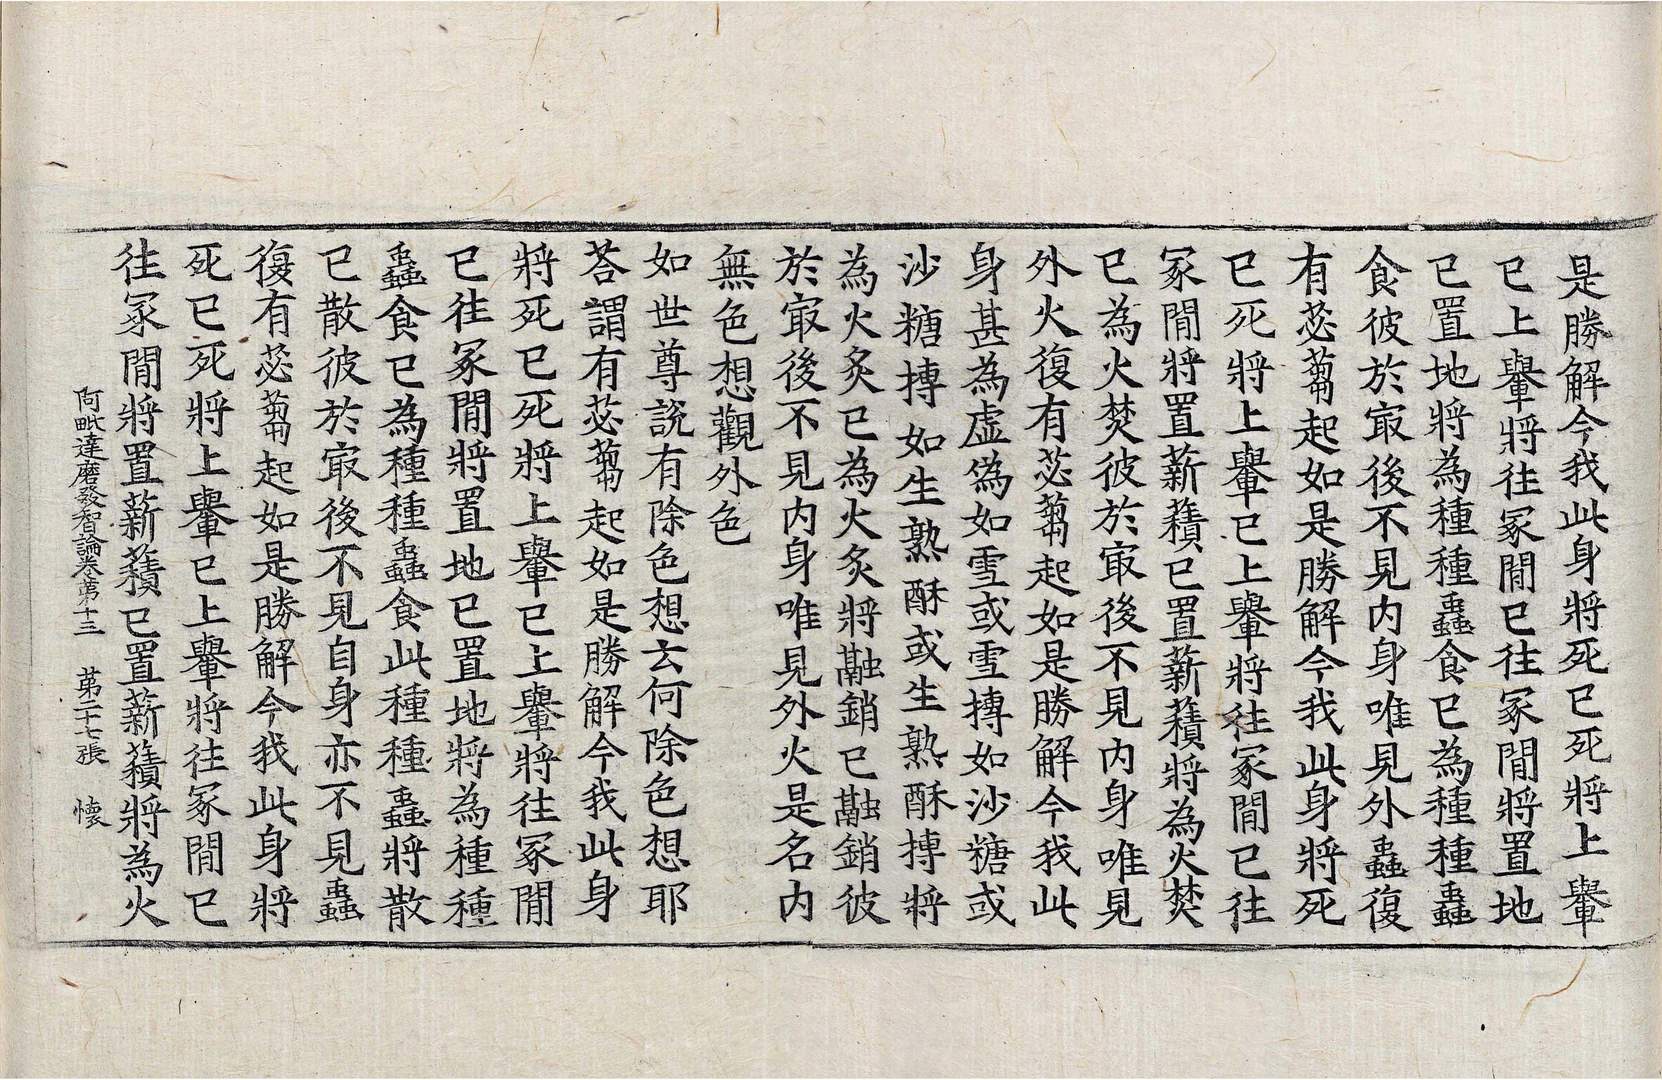 是勝解今我此身將死已死將上轝
已上轝將往冢間已往冢間將置地
已置地將為種種蟲食已為種種蟲
食彼於㝡後不見内身唯見外蟲復
有苾蒭起如是勝解今我此身將死
已死將上轝已上轝將往冢間已往
冢間將置薪𧂐已置薪𧂐將為火焚
已為火焚彼於㝡後不見内身唯見
外火復有苾蒭起如是勝解今我此
身甚為虛偽如雪或雪摶如沙糖或
沙糖摶如生熟酥或生熟酥摶將
為火炙已為火炙將融銷已融銷彼
於㝡後不見内身唯見外火是名内
無色想觀外色
如世尊說有除色想云何除色想耶
荅謂有苾蒭起如是勝解今我此身
將死已死將上轝已上轝將往冢間
已往冢間將置地已置地將為種種
蟲食已為種種蟲食此種種蟲將散
已散彼於㝡後不見自身亦不見蟲
復有苾蒭起如是勝解今我此身將
死已死將上轝已上轝將往冢間已
往冢間將置薪𧂐已置薪𧂐將為火
阿毗達磨發智論卷第十三　第二十七張　懷